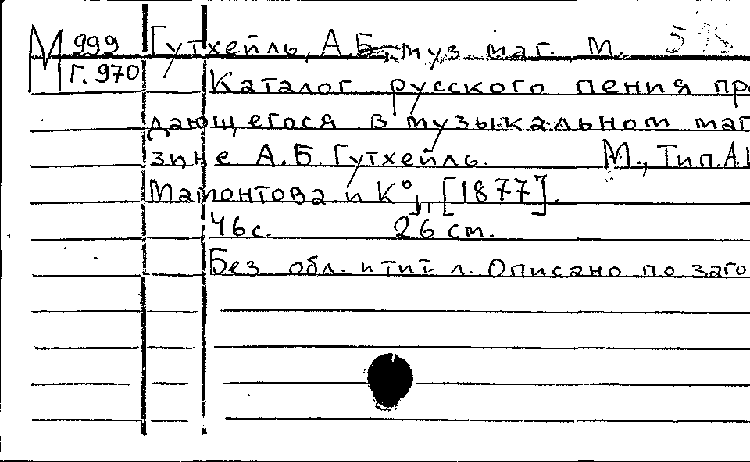 М 999 Гутхейль, А.Б., муз. маг. М.
Г. 970 Каталог русского пения про
дающегося в музыкальном мага
зине А.Б. Гутхейль. М., Тип. А.И
Мамонтова и К°, [1877].
46 с. 26 см.
Без обл. и тит. л. Описано по заго